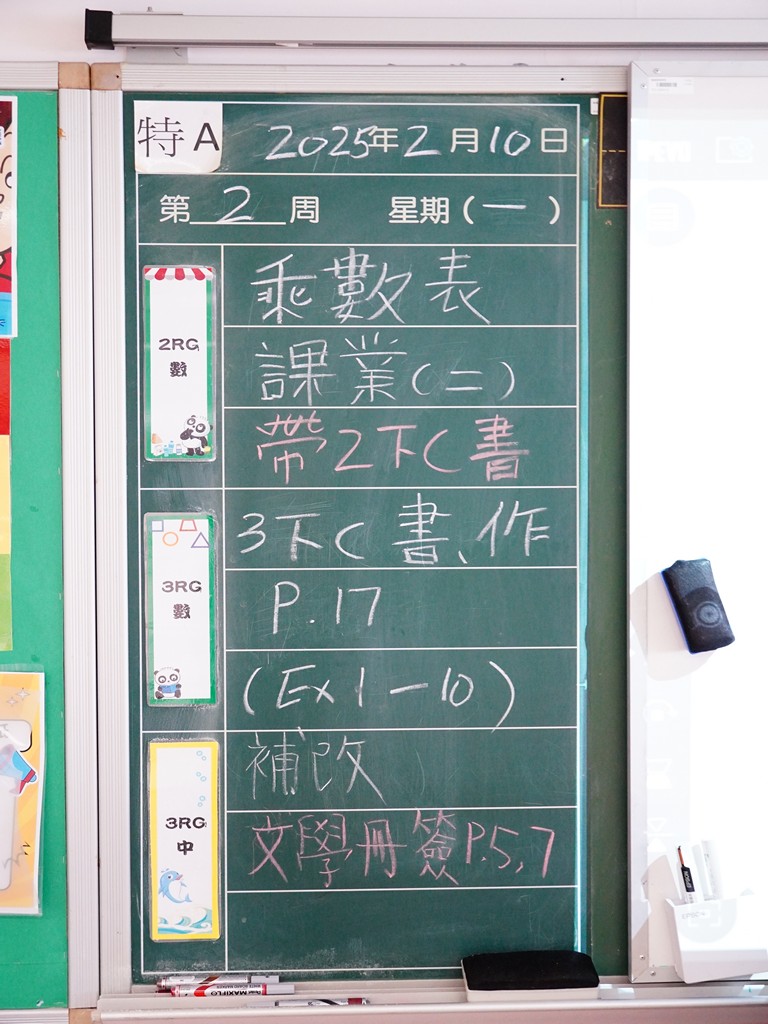 特A 2025年2月10日
第2周 星期(一)
2RG
數
乘數表
課業(二)
帶2下C書
3RG
數
3下C書、作
P.17
(Ex 1-10)
3RG
中
補改
文學冊簽P.5,7
MAXIFLO
EPSON